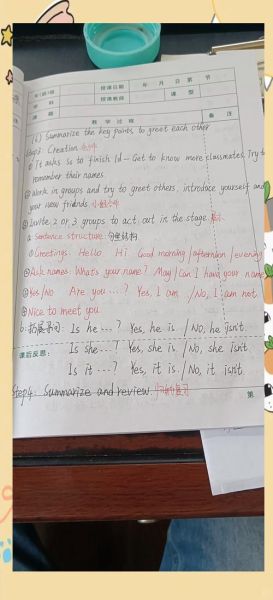 年(班)级 授课日期 年 月 日 第 节
学 科 授课教师 课 型
课 题
教 学 过 程 备 注
(6) Summarize the key points to greet each other
Step3 Creation
① It asks Ss to finish 1d - Get to know more classmates. Try to
remember their names.
② Work in groups and try to greet others, introduce yourself and
your new friends. 小组合作
③ Invite 2 or 3 groups to act out in the stage. 展示
a. Sentence structure: 句型结构
① Greetings. Hello Hi Good morning / afternoon / evening
② Ask names. What's your name? May / Can I have your name
③ Yes/No Are you ...? Yes, I am. / No, I am not.
④ Nice to meet you.
b. 拓展学习: Is he ...? Yes, he is. / No, he isn't.
课后反思: Is she ...? Yes, she is. / No, she isn't.
Is it ...? Yes, it is. / No, it isn't.
Step4: Summarize and review.
第